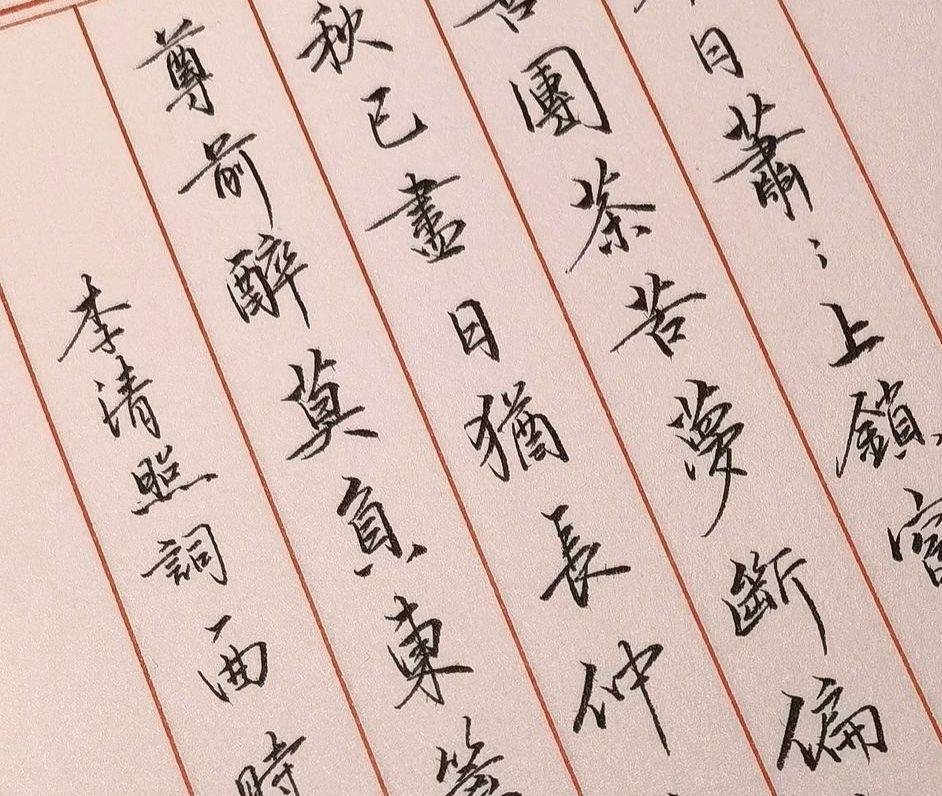 日蕭々上鎖窗
團茶苦夢斷偏
秋已盡日猶長仲
尊前醉莫負東籬
李清照詞西時